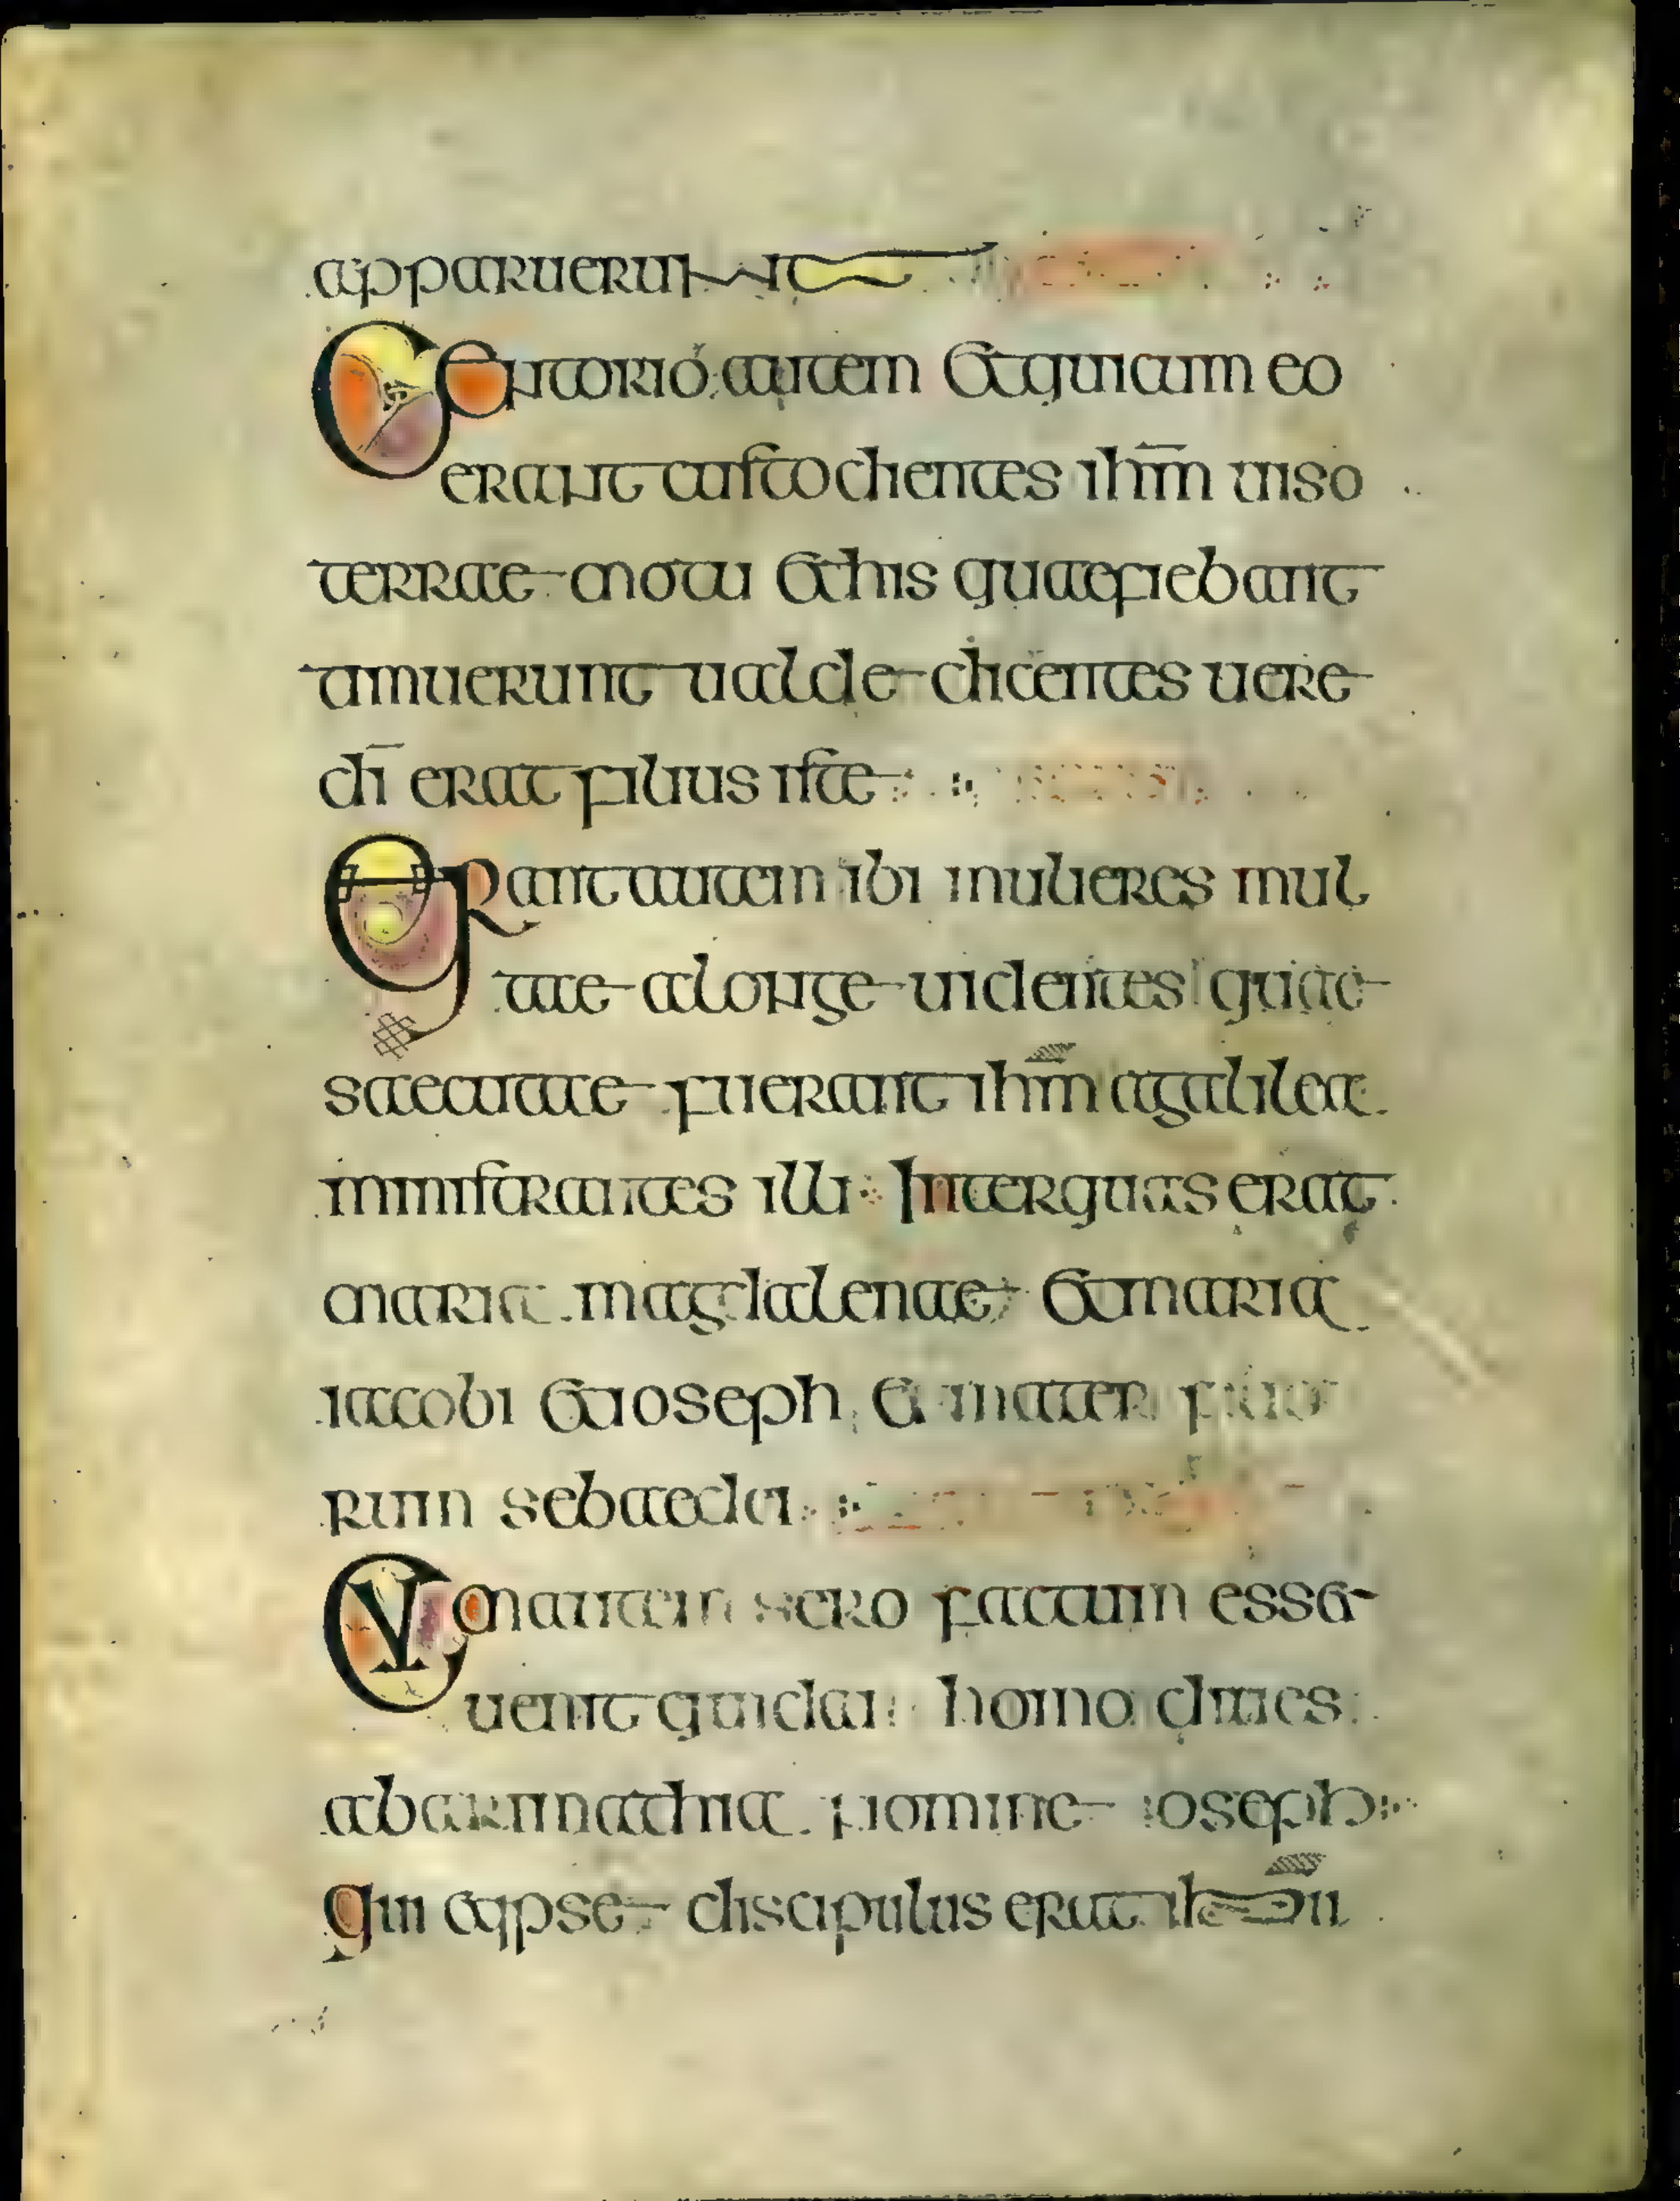 apparuerunt
Centorio autem et qui cum eo
erant custodientes ihm uiso
terrae motu et his quae fiebant
timuerunt ualde dicentes uere
di erat filius iste
Erant autem ibi mulieres mul
tae a longe uidentes quae
saecutae fuerant ihm a galilea
ministrantes illi Inter quas erat
maria magdalenae et maria
iacobi et ioseph et mater filio
rum sebaedei
Cvm autem sero factum esset
uenit quidam homo diues
ab arimathia nomine ioseph
qui et ipse discipulus erat